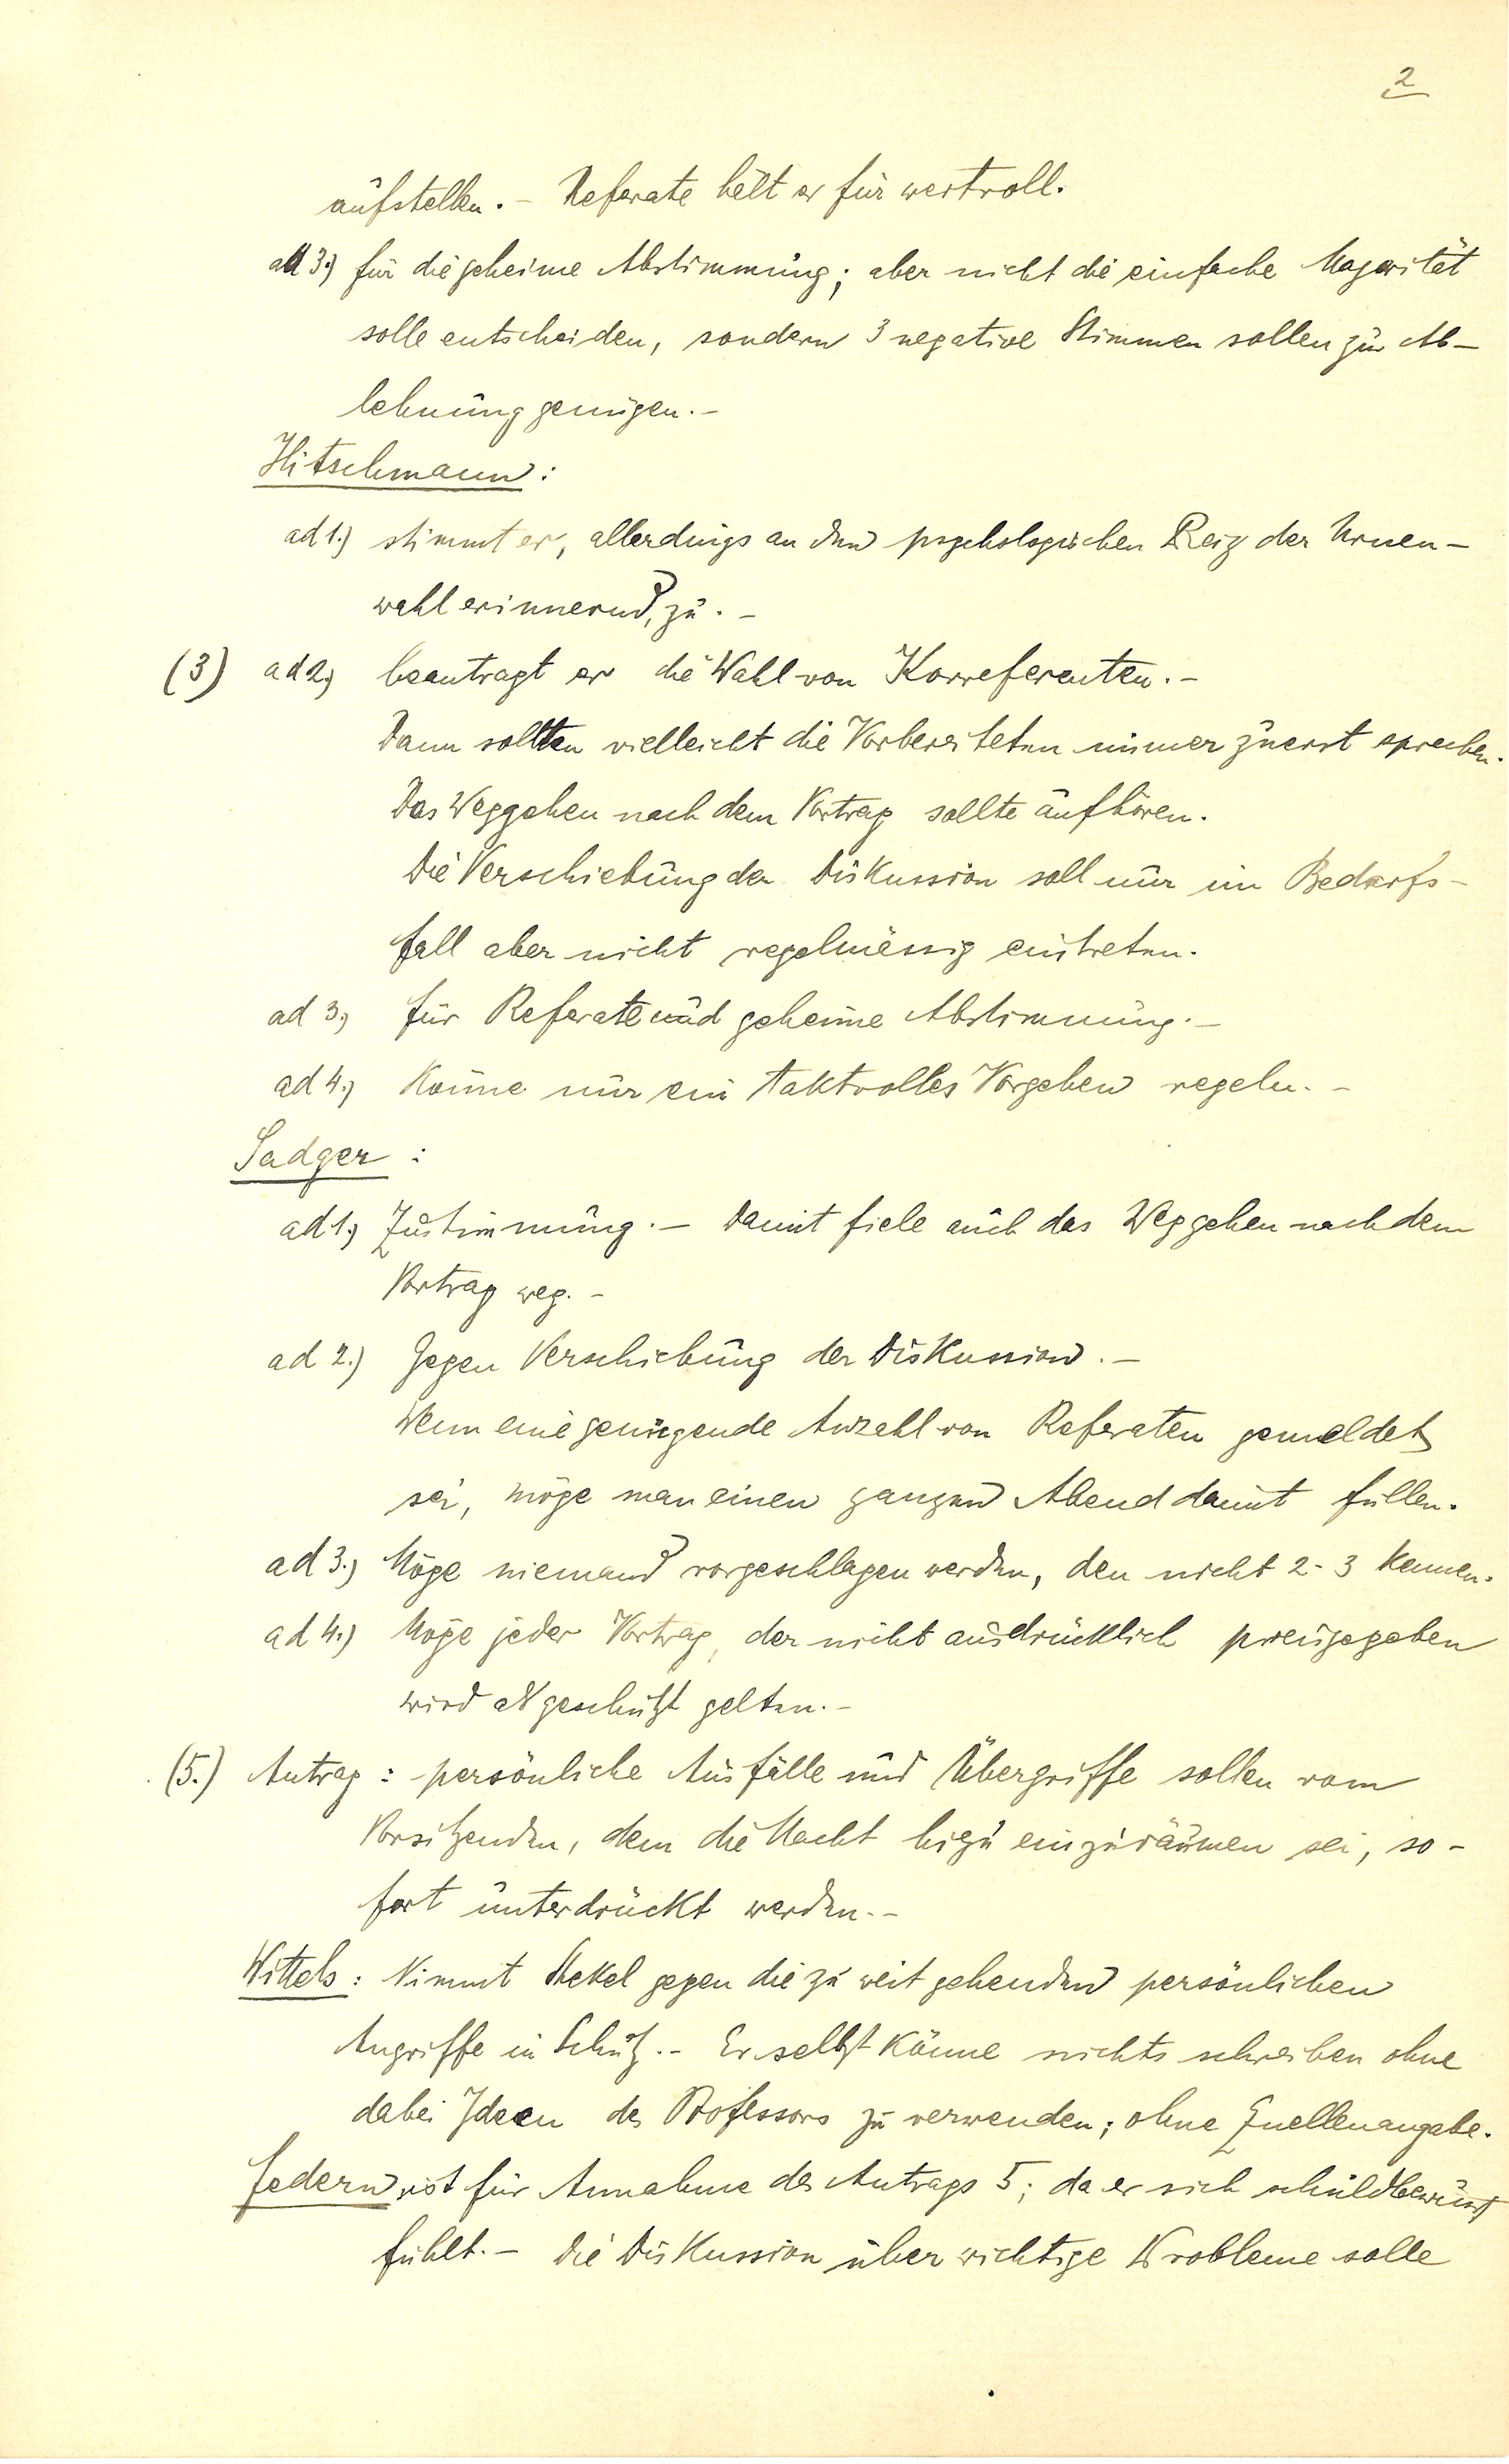 2
aufstellen. – Referate hält er für wertvoll.
ad 3.) für die geheime Abstimmung; aber nicht die einfache Majorität
solle entscheiden, sondern 3 negative Stimmen sollen zur Ab-
lehnung genügen. –
Hitschmann:
ad 1.) stimmt er, allerdings an den psychologischen Reiz der Urnen-
wahl erinnernd, zu. –
(3) ad 2.) beantragt er die Wahl von Korreferenten. –
Dann sollten vielleicht die Vorbereiteten immer zuerst sprechen.
Das Weggehen nach dem Vortrag sollte aufhören.
Die Verschiebung der Diskussion soll nur im Bedarfs-
fall aber nicht regelmässig eintreten.
ad 3.) für Referate und geheime Abstimmung. –
ad 4.) Könne nur ein taktvolles Vorgehen regeln. –
Sadger :
ad 1.) Zustimmung. – Damit fiele auch das Weggehen nach dem
Vortrag weg. –
ad 2.) Gegen Verschiebung der Diskussion. –
Wenn eine genügende Anzahl von Referaten gemeldet
sei, möge man einen ganzen Abend damit füllen.
ad 3.) Möge niemand vorgeschlagen werden, den nicht 2-3 kennen.
ad 4.) Möge jeder Vortrag, der nicht ausdrücklich preisgegeben
wird als geschützt gelten. –
(5.) Antrag : persönliche Ausfälle und Übergriffe sollen vom
Vorsitzenden, dem die Macht hiezu einzuräumen sei, so-
fort unterdrückt werden. –
Wittels : Nimmt Stekel gegen die zu weit gehenden persönlichen
Angriffe in Schutz. – Er selbst könne nichts schreiben ohne
dabei Ideen des Professors zu verwenden; ohne Quellenangabe.
Federn ist für Annahme des Antrags 5; da er sich schuldbewusst
fühlt. – Die Diskussion über wichtige Probleme solle